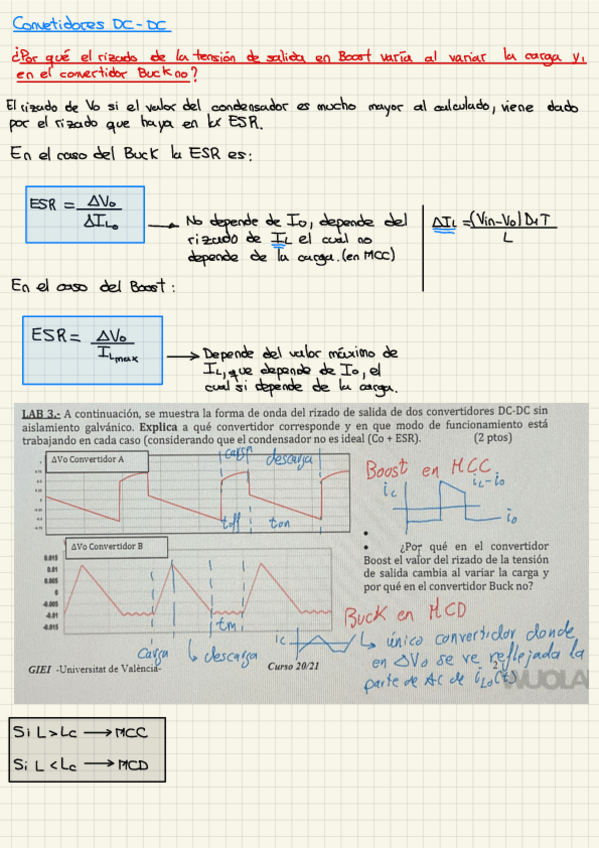 Convetidores DC-DC
¿Por qué el rizado de la tensión de salida en Boost varía al variar la carga y,
en el convertidor Buck no?
El rizado de Vo si el valor del condensador es mucho mayor al calculado, viene dado
por el rizado que haya en la ESR.
En el caso del Buck la ESR es:
ESR = ΔVo / ΔILo
→ No depende de Io, depende del
rizado de IL el cual no
depende de la carga. (en MCC)
ΔIL = (Vin-Vo) D1T / L
En el caso del Boost:
ESR = ΔVo / ILmax
→ Depende del valor máximo de
IL, que depende de Io, el
cual si depende de la carga.
LAB 3.- A continuación, se muestra la forma de onda del rizado de salida de dos convertidores DC-DC sin
aislamiento galvánico. Explica a qué convertidor corresponde y en que modo de funcionamiento está
trabajando en cada caso (considerando que el condensador no es ideal (Co + ESR). (2 ptos)
ΔVo Convertidor A
carga descarga
toff ton
Boost en MCC
ic
iL-io
io
• 
• ¿Por qué en el convertidor
Boost el valor del rizado de la tensión
de salida cambia al variar la carga y
por qué en el convertidor Buck no?
ΔVo Convertidor B
0.015
0.01
0.005
0
-0.005
-0.01
-0.015
tm
carga ↳ descarga
Buck en MCD
ic
↳ único convertidor donde
en ΔVo se ve reflejada la
parte de AC de iLo(t)
GIEI -Universitat de València-
Curso 20/21
2
WUOLA
Si L>Lc → MCC
Si L<Lc → MCD